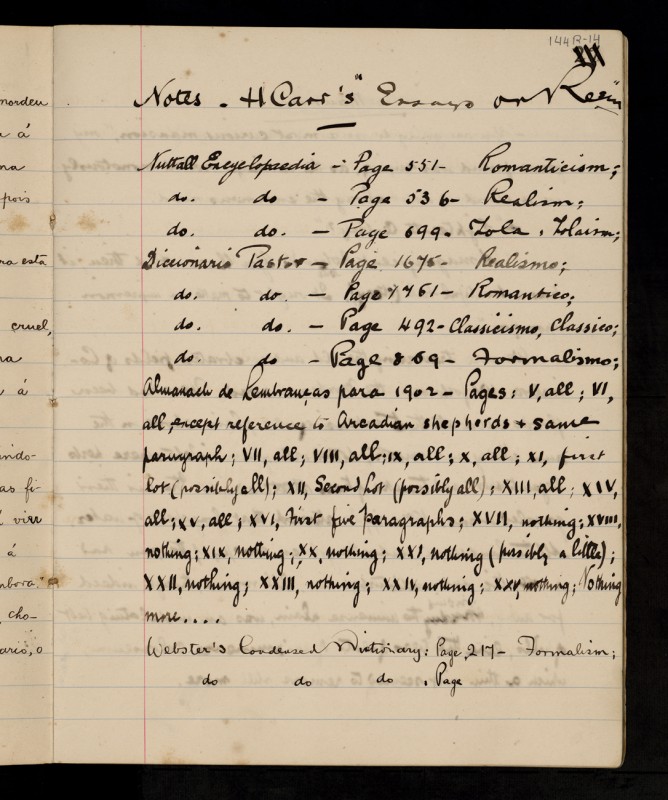 144B-14
Notes - H Carr's "Essays on Reason"
Nuttall Encyclopaedia - Page 551 - Romanticism;
do. do - Page 536 - Realism;
do. do. - Page 699 - Zola, Zolaism;
Diccionario Pastor - Page 1675 - Realismo;
do. do. - Page 1761 - Romantico;
do. do. - Page 492 - Classicismo, Classico;
do. do - Page 869 - Formalismo;
Almanach de Lembranças para 1902 - Pages: V, all; VI,
all, except reference to Arcadian shepherds & same
paragraph; VII, all; VIII, all; IX, all; X, all; XI, first
lot (possibly all); XII, Second Lot (possibly all); XIII, all; XIV,
all; XV, all; XVI, First five paragraphs; XVII, nothing; XVIII,
nothing; XIX, nothing; XX, nothing; XXI, nothing (possibly a little);
XXII, nothing; XXIII, nothing; XXIV, nothing; XXV, nothing; Nothing
more....
Webster's Condensed Dictionary: Page 217 - Formalism;
do do do. Page
mordeu
á
na
pois
ra está
cruel,
na
á
indo-
as fi-
viu
á
mbora
cho-
ario, o